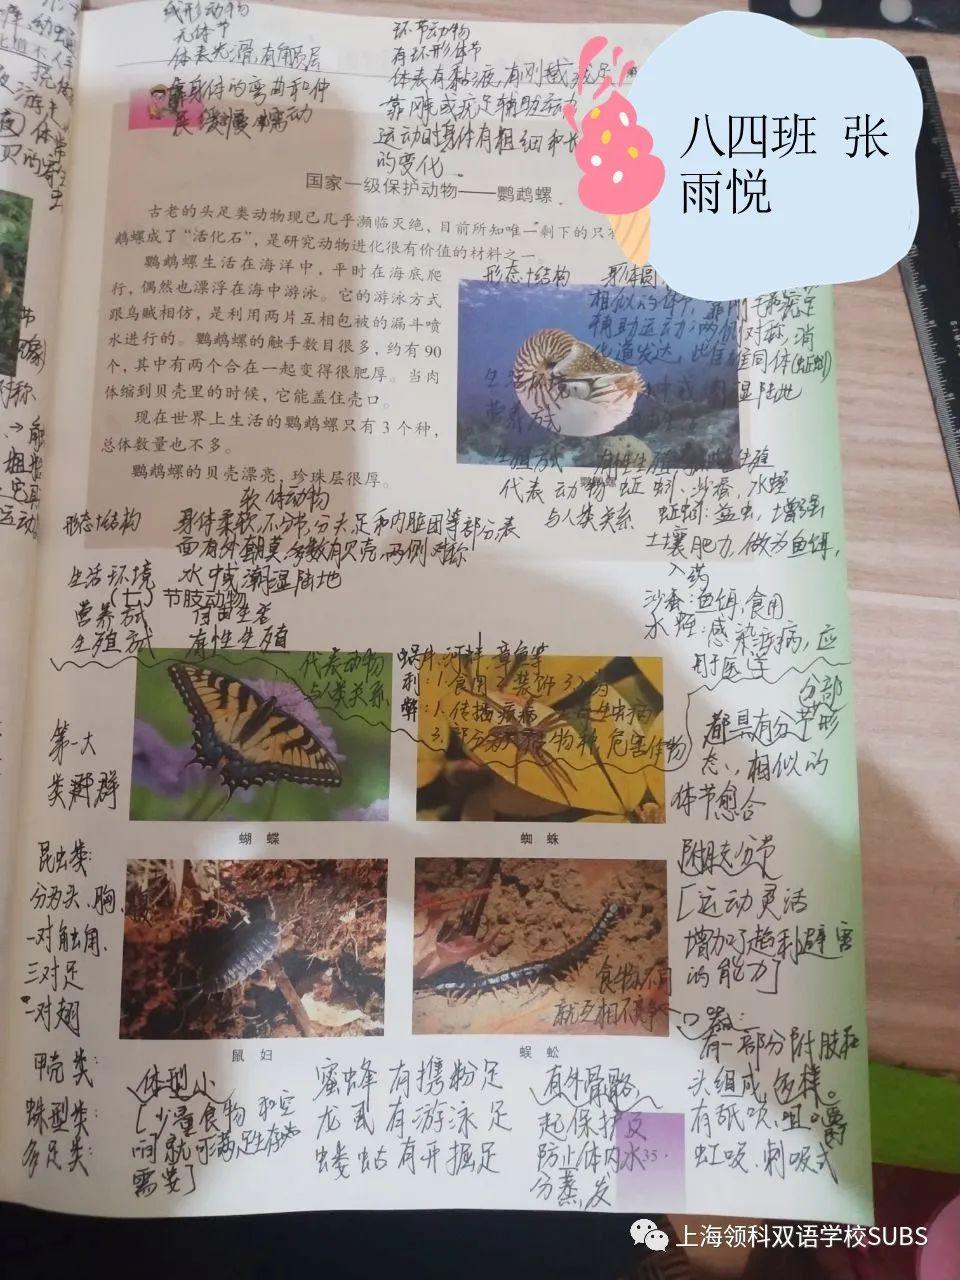 线形动物
无体节
体表光滑,有角质层
靠身体的弯曲和伸
展缓慢蠕动
环节动物
有环形体节
体表有黏液,有刚毛或疣足
靠刚毛或疣足辅助运动
运动时身体有粗细和长
的变化.
八四班 张
雨悦
国家一级保护动物——鹦鹉螺
古老的头足类动物现已几乎濒临灭绝,目前所知唯一剩下的只有
鹦鹉螺成了“活化石”,是研究动物进化很有价值的材料之一。
鹦鹉螺生活在海洋中,平时在海底爬
行,偶然也漂浮在海中游泳。它的游泳方式
跟乌贼相仿,是利用两片互相包被的漏斗喷
水进行的。鹦鹉螺的触手数目很多,约有90
个,其中有两个合在一起变得很肥厚。当肉
体缩到贝壳里的时候,它能盖住壳口。
现在世界上生活的鹦鹉螺只有3个种,
总体数量也不多。
鹦鹉螺的贝壳漂亮,珍珠层很厚。
形态+结构 身体圆
相似的体节,靠刚毛或疣足
辅助运动,两侧对称,消
化道发达,雌雄同体(蚯蚓)
生活环境: 水中或潮湿陆地
营养方式
生殖方式 有性生殖
代表动物 蚯蚓、沙蚕、水蛭
与人类关系 蚯蚓:益虫,增强
土壤肥力,做为鱼饵,
入药
沙蚕:鱼饵,食用
水蛭:感染疾病,应
用于医学
软体动物
形态+结构 身体柔软,不分节,分头、足和内脏团等部分,表
面有外套膜,多数有贝壳,两侧对称
生活环境 水中或潮湿陆地
(七)节肢动物
营养方式 自由生活
生殖方式 有性生殖
代表动物 蜗牛、河蚌、章鱼等
与人类关系 利:1.食用 2.装饰 3.入药
弊:1.传播疾病
3.部分软体动物 危害作物
第一大
类群
蝴 蝶
蜘 蛛
都具有分节形
分部
态,相似的
体节愈合
附肢分节
[运动灵活
增加了趋利避害
的能力]
昆虫类:
分为头、胸、腹
一对触角、
三对足
二对翅
甲壳类:
蛛型类:
多足类:
食物不同
就互相不竞争
鼠 妇
蜈 蚣
口器:
有一部分附肢和
头组成,多样。
有舐吸,咀嚼
虹吸、刺吸式
体型小
[少量食物和空
间就可满足生存
需要]
蜜蜂有携粉足
龙虱有游泳足
蝼蛄有开掘足
有外骨骼,
起保护及
防止体内水
分蒸发
35
上海领科双语学校SUBS